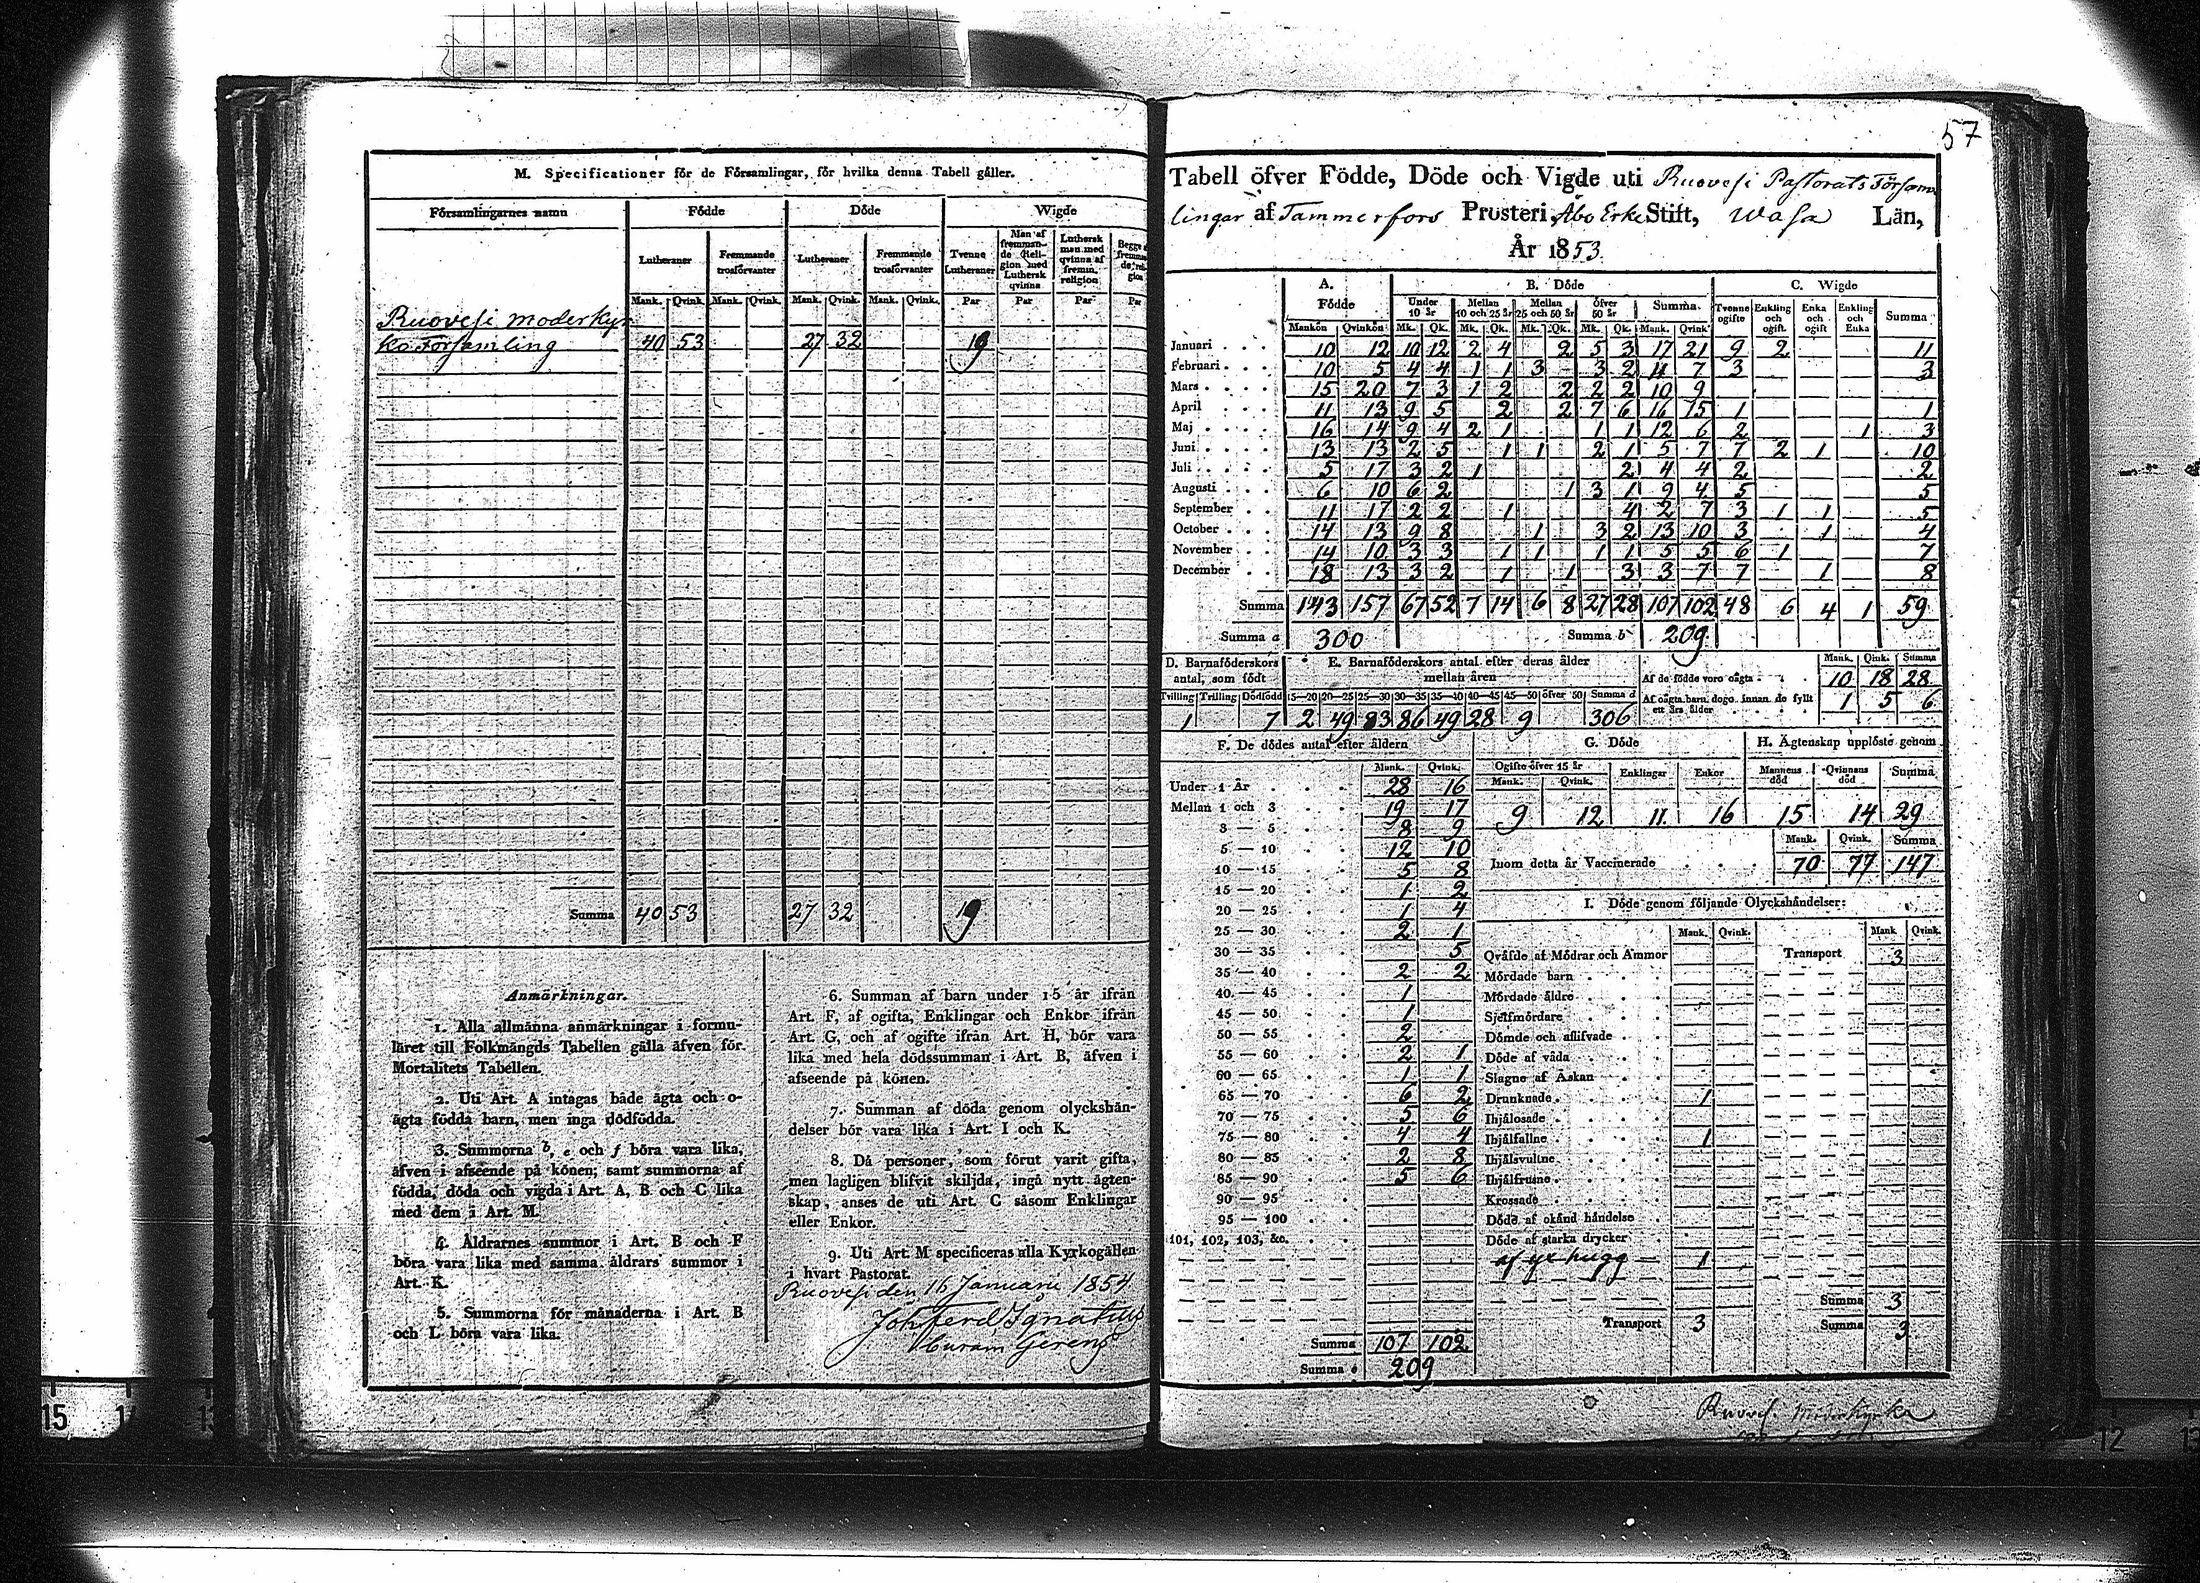 M. Specificationer för de Församlingar, för hvilka denna Tabell gäller.
Församlingarnes namn Födde Döde Wigde
Lutheraner Fremmande trosförvanter Lutheraner Fremmande trosförvanter Tvenne Lutheraner Man af fremmande Religion med Luthersk qvinna Luthersk man med qvinna af fremm. religion Begge af fremmande religion
Mank. Qvink. Mank. Qvink. Mank. Qvink. Mank. Qvink. Par Par Par Par
Ruovesi Moderkyr
ko Församling 40 53 27 32 19
Summa 40 53 27 32 19
Anmärkningar.
1. Alla allmänna anmärkningar i formu-
läret till Folkmängds Tabellen gälla äfven för
Mortalitets Tabellen.
2. Uti Art. A intagas både ägta och o-
ägta födda barn, men inga dödfödda.
3. Summorna b, e och f böra vara lika,
äfven i afseende på könen; samt summorna af
födda, döda och vigda i Art. A, B och C lika
med dem i Art. M.
4. Åldrarnes summor i Art. B och F
böra vara lika med samma åldrars summor i
Art. K.
5. Summorna för månaderna i Art. B
och L böra vara lika.
6. Summan af barn under 15 år ifrån
Art. F, af ogifta, Enklingar och Enkor ifrån
Art. G, och af ogifte ifrån Art. H, bör vara
lika med hela dödssumman i Art. B, äfven i
afseende på könen.
7. Summan af döda genom olyckshän-
delser bör vara lika i Art. I och K.
8. Då personer, som förut varit gifta,
men lagligen blifvit skiljda, ingå nytt ägten-
skap, anses de uti Art. C såsom Enklingar
eller Enkor.
9. Uti Art. M specificeras alla Kyrkogällen
i hvart Pastorat.
Ruovesi den 16 Januarii 1854
Joh Ferd Ignatius
Curam Gerens
57
Tabell öfver Födde, Döde och Vigde uti Ruovesi Pastorats Försam
lingar af Tammerfors Prosteri, Åbo Erke Stift, Wasa Län,
År 1853.
A. B. Döde C. Wigde
Födde Under 10 år Mellan 10 och 25 år Mellan 25 och 50 år öfver 50 år Summa Tvenne ogifte Enkling och ogift. Enka och ogift Enkling och Enka Summa
Mankön Qvinkön Mk. Qk. Mk. Qk. Mk. Qk. Mk. Qk. Mank. Qvink.
Januari 10 12 10 12 2 4 2 5 3 17 21 9 2 11
Februari 10 5 4 4 1 1 3 3 2 11 7 3 3
Mars 15 20 7 3 1 2 2 2 2 10 9
April 11 13 9 5 2 2 7 6 16 15 1 1
Maj 16 14 9 4 2 1 1 1 12 6 2 1 3
Juni 13 13 2 5 1 1 2 1 5 7 7 2 1 10
Juli 5 17 3 2 1 2 4 4 2 2
Augusti 6 10 6 2 1 3 1 9 4 5 5
September 11 17 2 2 1 4 2 7 3 1 1 5
October 14 13 9 8 1 3 2 13 10 3 1 4
November 14 10 3 3 1 1 1 1 5 5 6 1 7
December 18 13 3 2 1 1 3 3 7 7 1 8
Summa 143 157 67 52 7 14 6 8 27 28 107 102 48 6 4 1 59
Summa a 300 Summa b 209
D. Barnaföderskors antal, som födt E. Barnaföderskors antal efter deras ålder mellan åren Mank. Qink. Summa
Af de födde voro oägta 10 18 28
Tvilling Trilling Dödfödd 15—20 20—25 25—30 30—35 35—40 40—45 45—50 öfver 50 Summa d
Af oägta barn dogo innan de fyllt ett års ålder 1 5 6
1 7 2 49 83 86 49 28 9 306
F. De dödes antal efter åldern G. Döde H. Ägtenskap upplöste genom
Mank. Qvink. Ogifte öfver 15 år Mank. Qvink. Enklingar Enkor Mannens död Qvinnans död Summa
9 12 11 16 15 14 29
Mank. Qvink. Summa
Inom detta år Vaccinerade 70 77 147
Under 1 År 28 16
Mellan 1 och 3 19 17
3 — 5 8 9
5 — 10 12 10
10 — 15 5 8
15 — 20 1 2
20 — 25 1 4
25 — 30 2 1
30 — 35 5
35 — 40 2 2
40 — 45 1
45 — 50 1
50 — 55 2
55 — 60 2 1
60 — 65 1 1
65 — 70 6 2
70 — 75 5 6
75 — 80 4 4
80 — 85 2 8
85 — 90 5 6
90 — 95
95 — 100
101, 102, 103, &c.
Summa 107 102
Summa e 209
I. Döde genom följande Olyckshändelser:
Mank. Qvink. Mank Qvink.
Qväfde af Mödrar och Ammor Transport 3
Mördade barn
Mördade äldre
Sjelfmördare
Dömde och aflifvade
Döde af våda
Slagne af Åskan
Drunknade 1
Ihjälosade
Ihjälfallne 1
Ihjälsvultne
Ihjälfrusne
Krossade
Döde af okänd händelse
Döde af starka drycker
af yxhugg 1 Summa 3
Transport 3 Summa 3
Ruovesi Moderkyrka
15 12